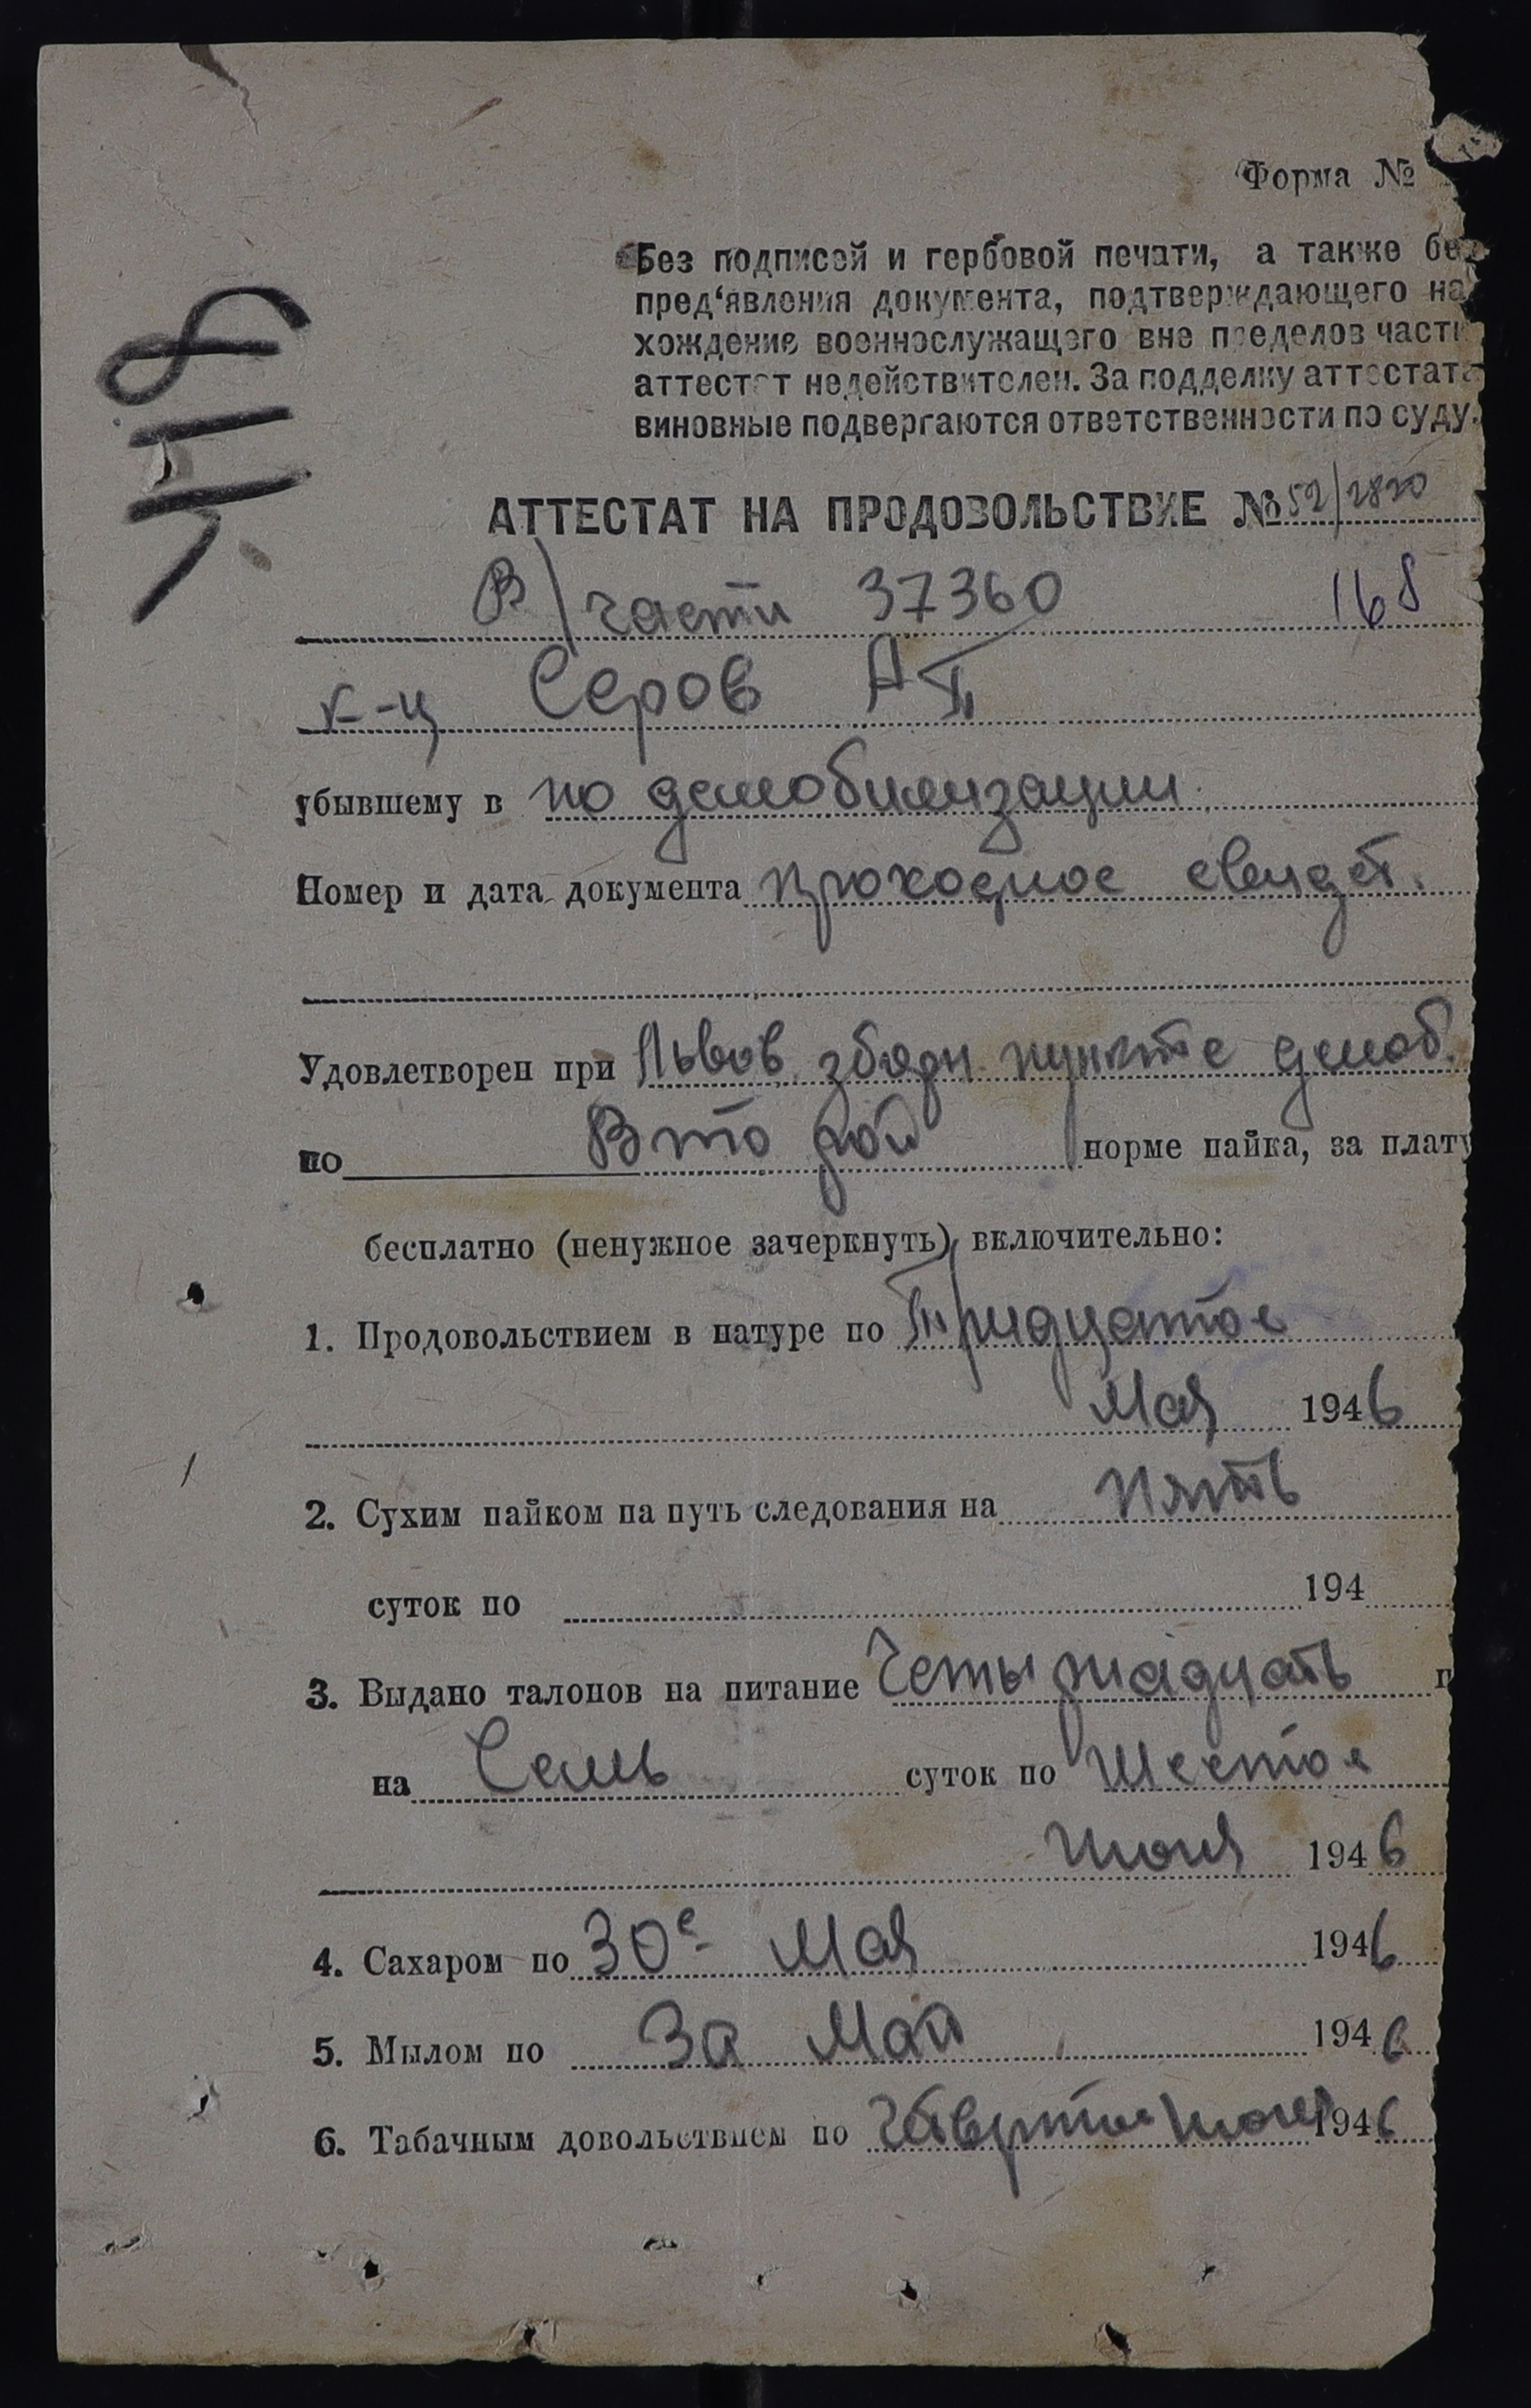 Форма №
Без подписей и гербовой печати, а также бе
пред‘явления документа, подтверждающего на
хождение военнослужащего вне пределов части
аттестат недействителен. За подделку аттестата
виновные подвергаются ответственности по суду.
АТТЕСТАТ НА ПРОДОВОЛЬСТВИЕ № 52/2820
В/части 37360 168
к-ц Серов АП
убывшему в по демобилизации
Номер и дата документа проходное свидет.
Удовлетворен при Львов. зборн пункте демоб.
по Второй норме пайка, за плату
бесплатно (ненужное зачеркнуть) включительно:
1. Продовольствием в натуре по Тридцатое
Мая 1946
2. Сухим пайком на путь следования на Пять
суток по 194
3. Выдано талонов на питание Четырнадцать
на Семь суток по Шестое
Июня 1946
4. Сахаром по 30е Мая 1946
5. Мылом по За Май 1946
6. Табачным довольствием по Июня 1946
1418